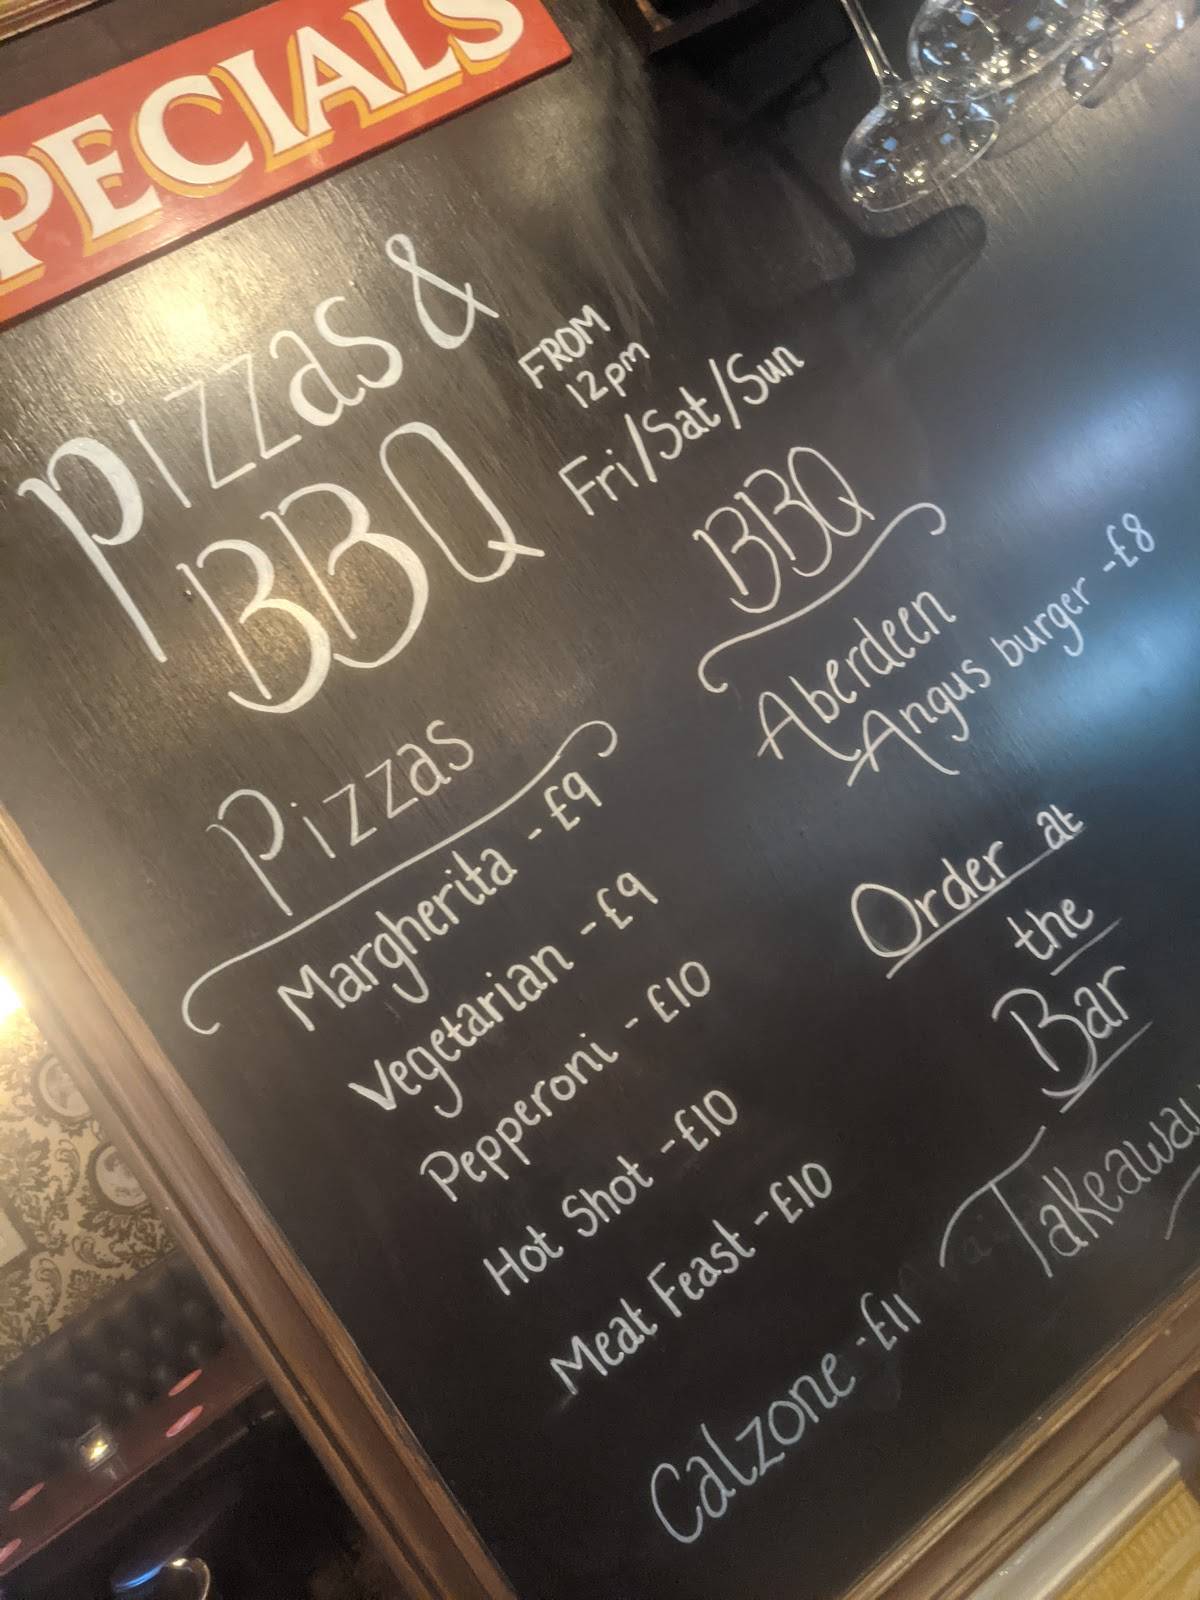 PECIALS
Pizzas &
BBQ
FROM
12pm
Fri/Sat/Sun
Pizzas
Margherita - £9
Vegetarian - £9
Pepperoni - £10
Hot Shot - £10
Meat Feast - £10
Calzone - £11
BBQ
Aberdeen
Angus burger - £8
Order at
the
Bar
Takeaway